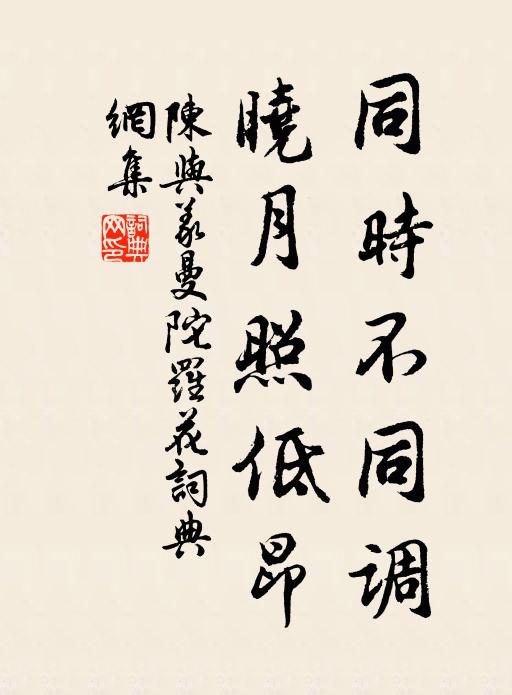 同時不同调
曉月照低昂
陳與義曼陀羅花詞典
網集
詞典網印